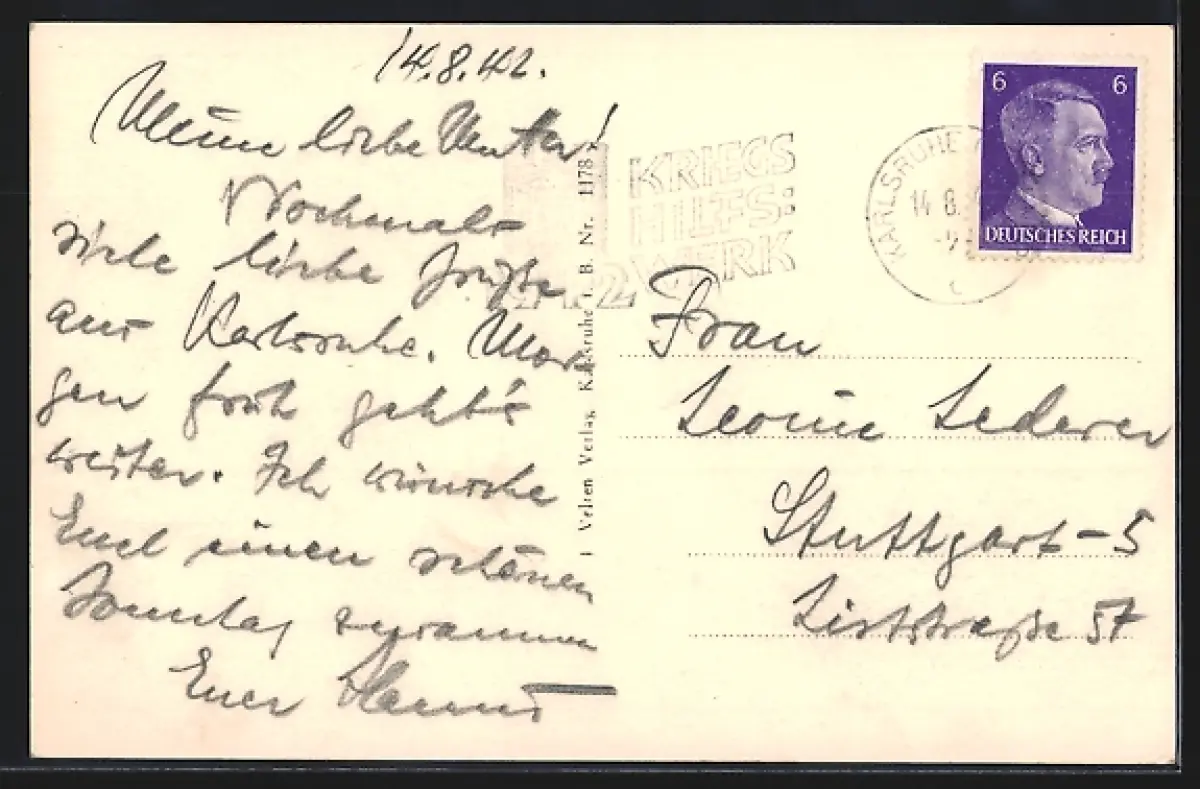 14.8.42.
Meine liebe Mutter!
Nochmals
viele liebe Grüße
aus Karlsruhe. Mor-
gen früh geht's
weiter. Ich wünsche
Euch einen schönen
Sonntag zusammen
Euer Hanns
Velten Verlag, Karlsruhe i. B. Nr. 1178
KRIEGS
HILFS:
WERK
KARLSRUHE
14 8.
6 6
DEUTSCHES REICH
Frau
Leonie Lederer
Stuttgart-5
Liststraße 57